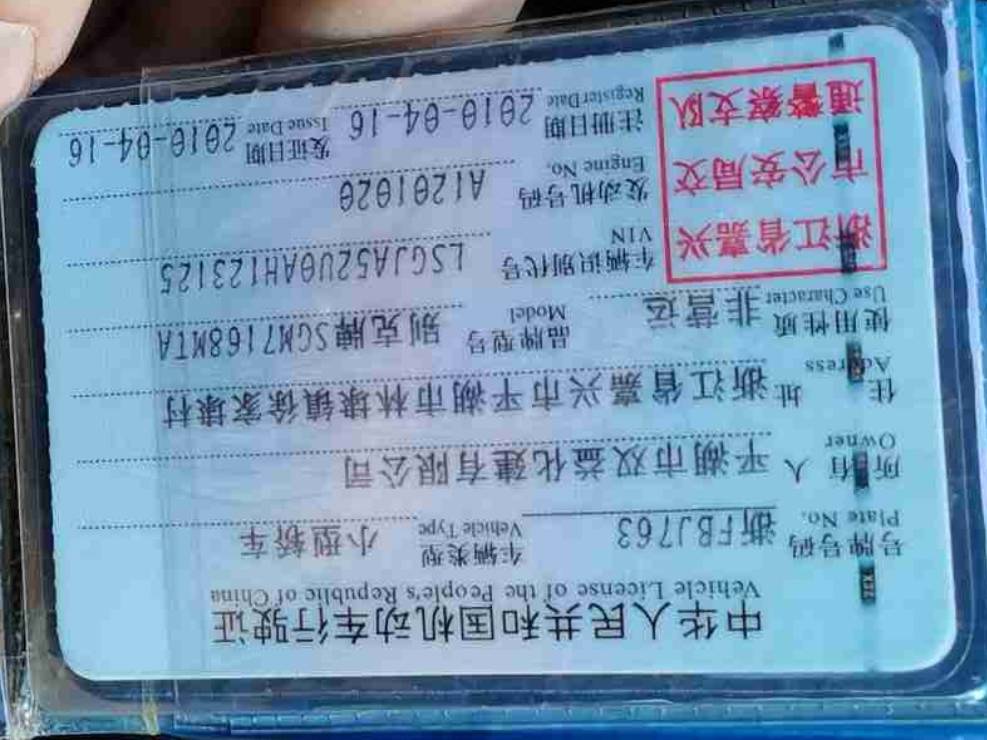 中华人民共和国机动车行驶证
Vehicle License of the People's Republic of China
号牌号码 浙FBJ763 车辆类型 小型轿车
Plate No. Vehicle Type
所有人 平湖市双益化建有限公司
Owner
住址 浙江省嘉兴市平湖市林埭镇徐家埭村
Address
使用性质 非营运 品牌型号 别克牌SGM7168MTA
Use Character Model
浙江省嘉兴
市公安局交
通警察支队
车辆识别代号 LSGJA52U0AH123125
VIN
发动机号码 A1201020
Engine No.
注册日期 2010-04-16 发证日期 2010-04-16
Register Date Issue Date